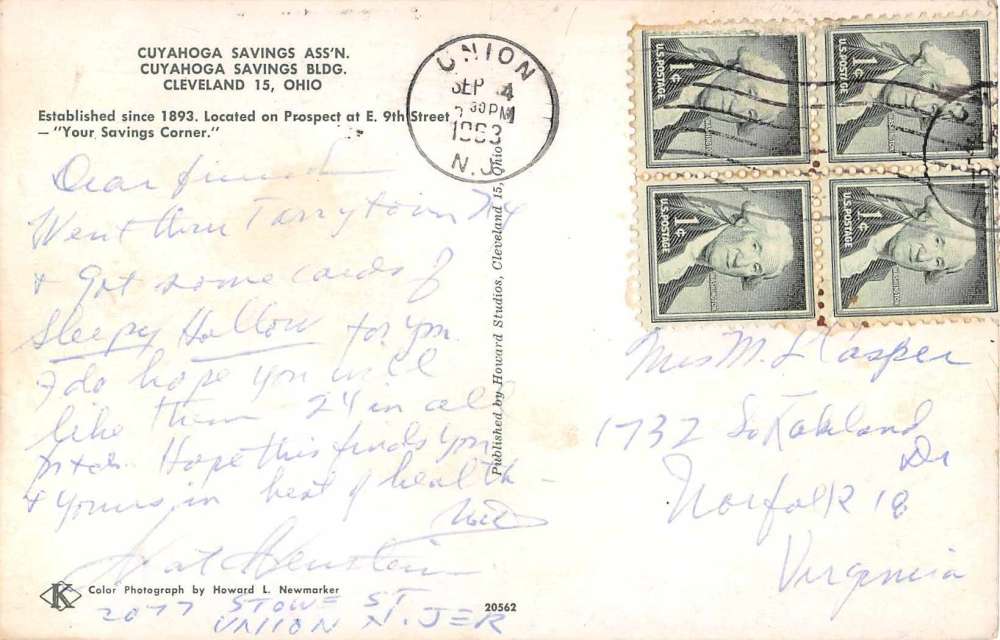 CUYAHOGA SAVINGS ASS'N.
CUYAHOGA SAVINGS BLDG.
CLEVELAND 15, OHIO
Established since 1893. Located on Prospect at E. 9th Street
— "Your Savings Corner."
UNION
SEP 4
30 PM
1963
N.J.
U.S. POSTAGE
1¢
WASHINGTON
U.S. POSTAGE
1¢
WASHINGTON
U.S. POSTAGE
1¢
WASHINGTON
U.S. POSTAGE
1¢
WASHINGTON
Dear friend
Went thru Tarrytown NY
+ got some cards of
Sleepy Hollow for you
I do hope you will
like them 24 in all
Hope this finds you
+ yours in best of health -
2077 STOWE ST
UNION N. JER
Published by Howard Studios, Cleveland 15, Ohio
Mrs M. Kasper
1732
Dr
Norfolk 18
Virginia
K
Color Photograph by Howard L. Newmarker
20562